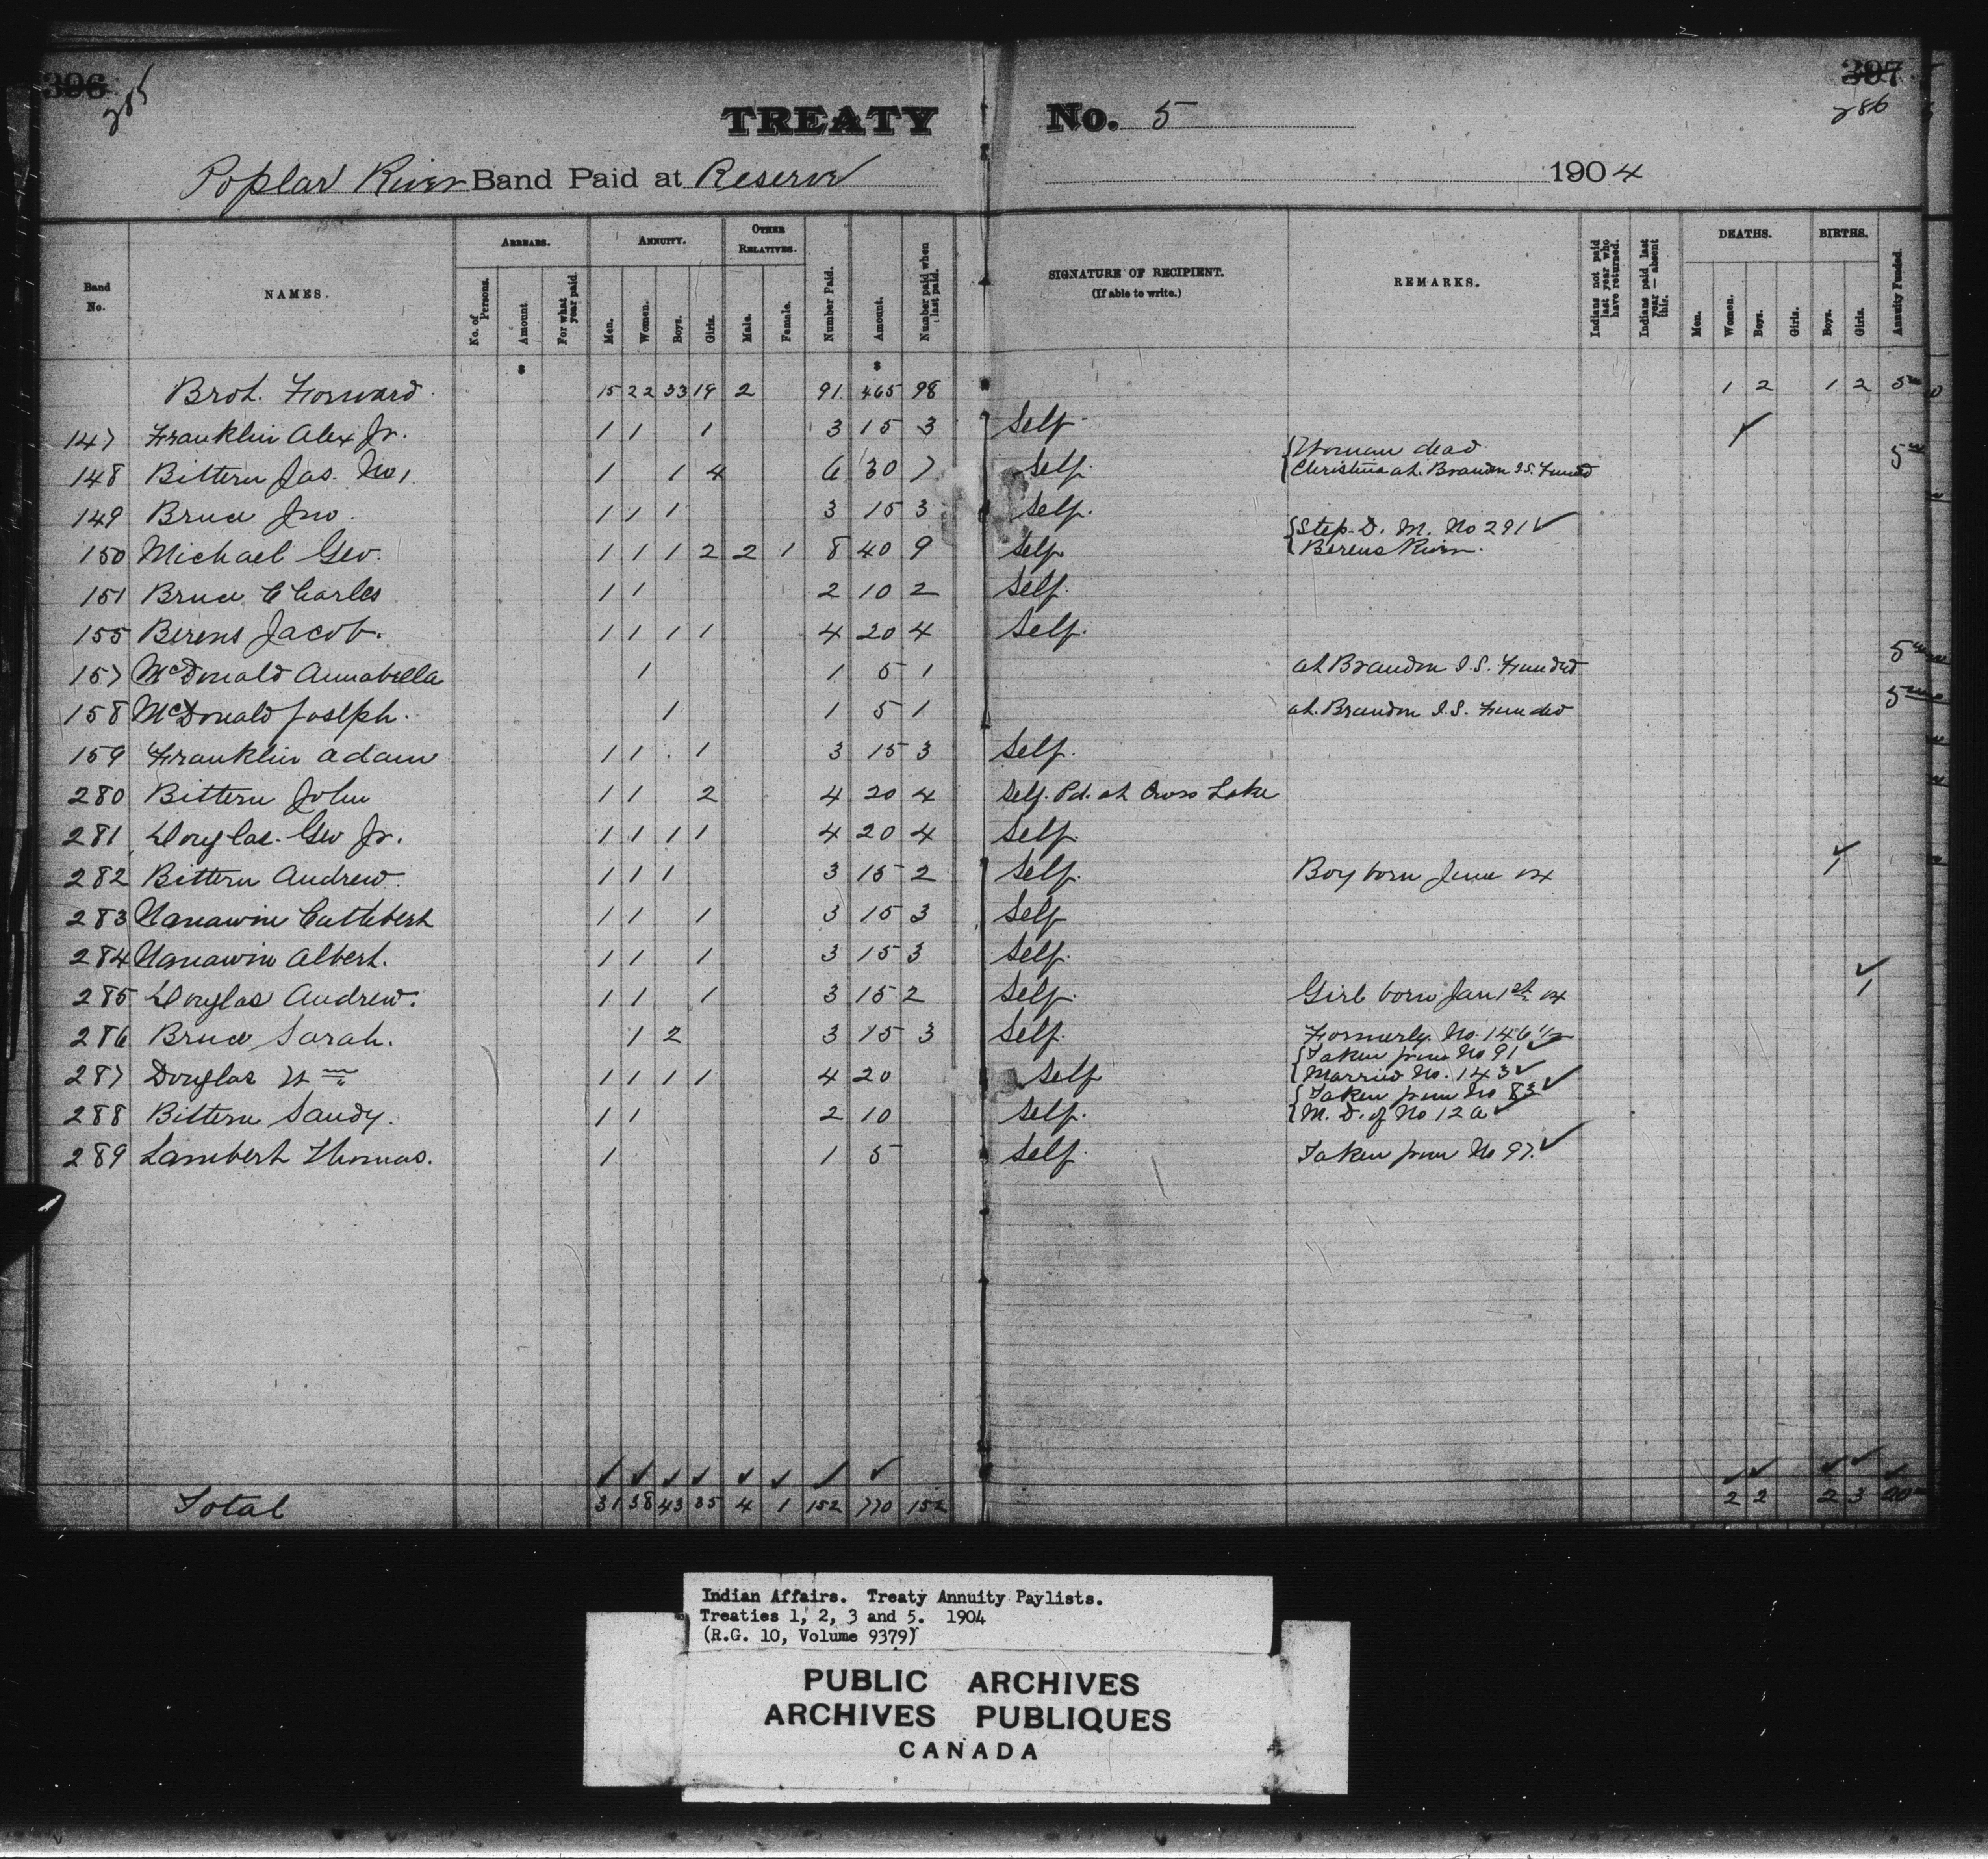 396 397
285 286
TREATY No. 5
Poplar River Band Paid at Reserve 1904
Band No. NAMES. ARREARS. No. of Persons. Amount For what year paid. ANNUITY. Men. Women. Boys. Girls. OTHER RELATIVES. Male. Female. Number Paid. Amount. Number paid when last paid. SIGNATURE OF RECIPIENT. (If able to write.) REMARKS. Indians not paid last year who have returned. Indians paid last year — absent this. DEATHS. Men. Women. Boys. Girls. BIRTHS. Boys. Girls. Annuity Funded.
$ $
Brot. Forward 15 22 33 19 2 91 465 98 1 2 1 2 5
147 Franklin Alex Jr. 1 1 1 3 15 3 Self
148 Bittern Jas. No 1. 1 1 4 6 30 7 Self. { Woman dead 5
Christina at. Brandon I.S. Funded
149 Bruce Jno. 1 1 1 3 15 3 Self.
150 Michael Geo. 1 1 1 2 2 1 8 40 9 Self { Step. D. M. No 291 ✓
Berens River.
151 Bruce Charles 1 1 2 10 2 Self.
155 Berens Jacob. 1 1 1 1 4 20 4 Self.
157 McDonald Annabella 1 1 5 1 at Brandon I.S. Funded 5
158 McDonald Joseph. 1 1 5 1 at. Brandon I.S. Funded 5
159 Franklin Adam 1 1 1 3 15 3 Self.
280 Bittern John 1 1 2 4 20 4 Self. Pd. at Cross Lake
281 Douglas. Geo Jr. 1 1 1 1 4 20 4 Self.
282 Bittern Andrew. 1 1 1 3 15 2 Self. Boy born June 04 ✓ 1
283 Nanawin Cuthbert 1 1 1 3 15 3 Self
284 Nanawin Albert. 1 1 1 3 15 3 Self.
285 Douglas Andrew. 1 1 1 3 15 2 Self. Girl born Jan 1st 04 ✓ 1
286 Bruce Sarah. 1 2 3 15 3 Self. Formerly No. 146 1/2
287 Douglas Wm 1 1 1 1 4 20 Self { Taken from No 91 ✓
Married No. 143 ✓
288 Bittern Sandy. 1 1 2 10 Self. { Taken from No 83 ✓
M. D. of No 12a ✓
289 Lambert Thomas. 1 1 5 Self. Taken from No 97. ✓
Total 31 38 43 35 4 1 152 770 152 2 2 2 3 20
Indian Affairs. Treaty Annuity Paylists.
Treaties 1, 2, 3 and 5. 1904
(R.G. 10, Volume 9379)
PUBLIC ARCHIVES
ARCHIVES PUBLIQUES
CANADA